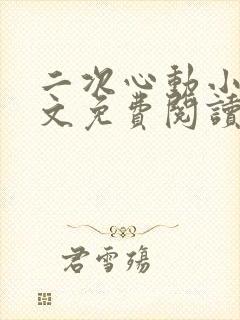 二次心動小
文免費閱讀
君雪殤